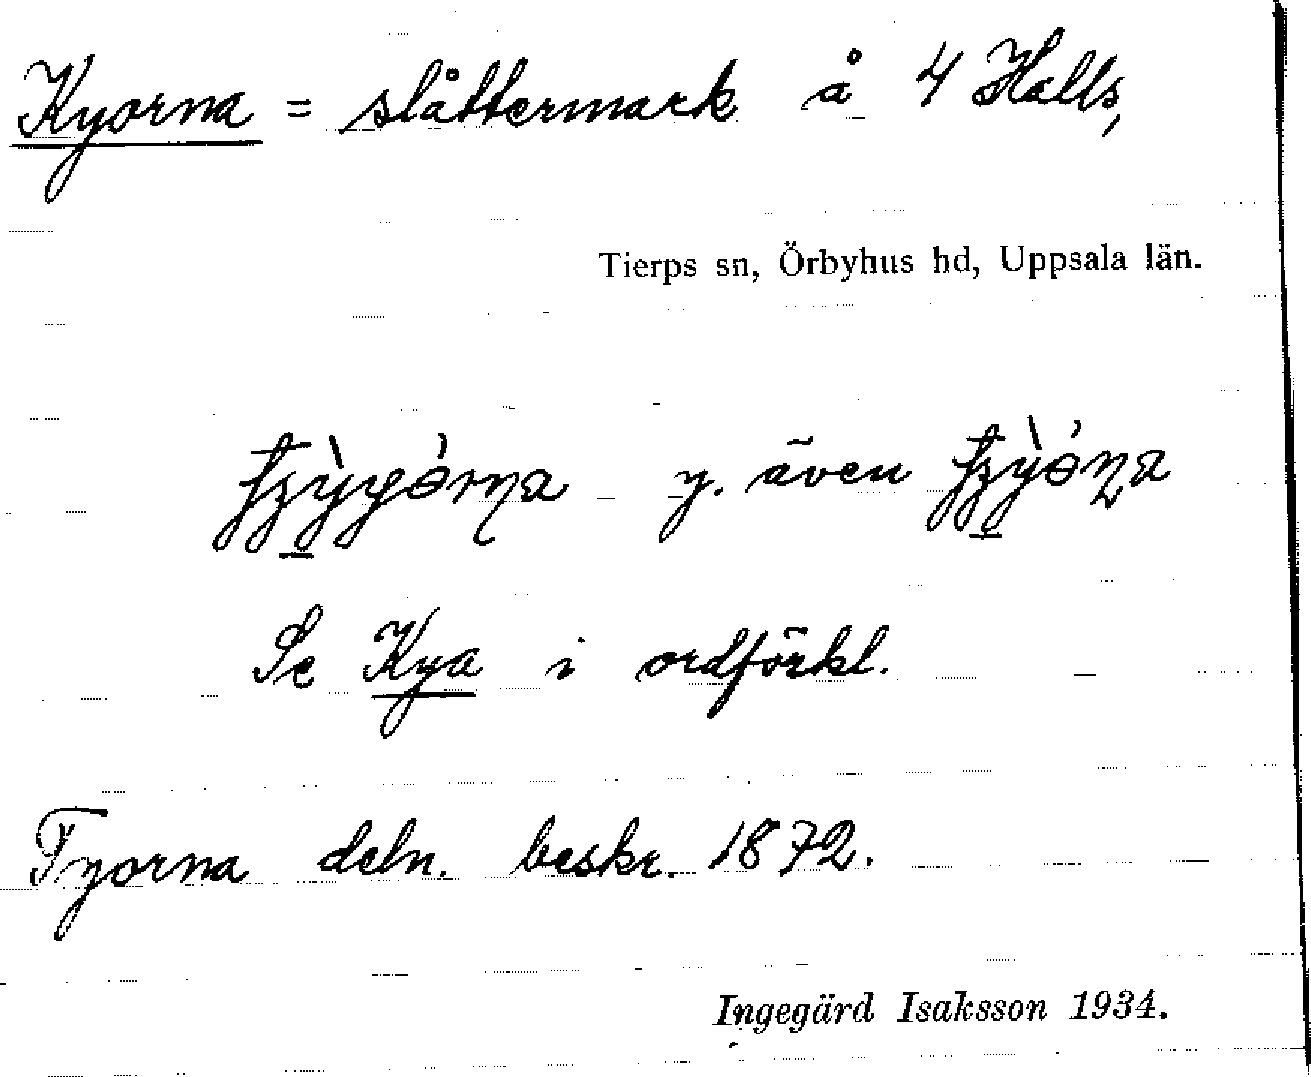 Kyorna = slåttermark å 4 Halls,
Tierps sn, Örbyhus hd, Uppsala län.
y. även
Se Kya i ordförkl.
Tyorna deln. beskr. 1872.
Ingegärd Isaksson 1934.